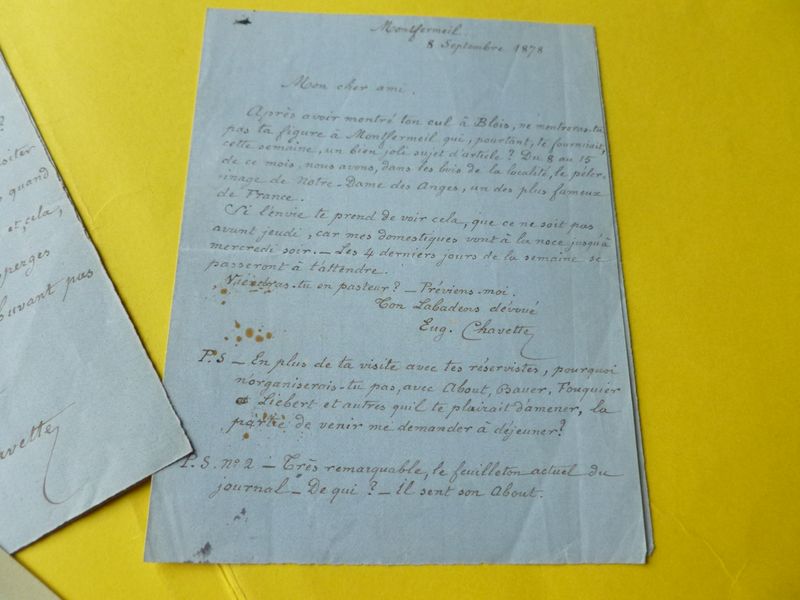 Montfermeil
8 Septembre 1878
Mon cher ami.
Après avoir montré ton cul à Blois, ne montreras-tu
pas ta figure à Montfermeil qui, pourtant, te fournirait,
cette semaine, un bien joli sujet d'article ? Du 8 au 15
de ce mois, nous avons, dans les bois de la localité, le péler-
inage de Notre-Dame des Anges, un des plus fameux
de France.
Si l'envie te prend de voir cela, que ce ne soit pas
avant jeudi, car mes domestiques vont à la noce jusqu'à
mercredi soir. — Les 4 derniers jours de la semaine se
passeront à t'attendre.
Viendras-tu en pasteur ? — Préviens-moi.
Ton Labadens dévoué
Eug. Chavette
P.S — En plus de ta visite avec tes réservistes, pourquoi
n'organiserais-tu pas, avec About, Bauer, Fouquier
Liébert et autres qu'il te plairait d'amener, la
partie de venir me demander à déjeuner ?
P.S. No 2 — Très remarquable, le feuilleton actuel du
journal — De qui ? — Il sent son About.
?
siter
quand
et cela,
sperges
suivant pas
avette